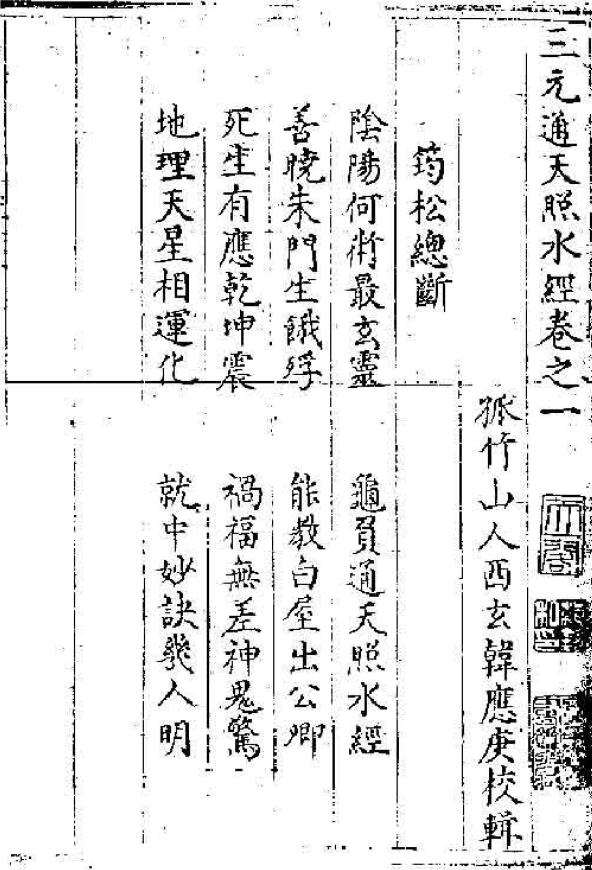 三元通天照水經卷之一
孤竹山人西玄韓應庚校輯
筠松總斷
陰陽何術最玄靈　龜負通天照水經
善曉朱門生餓殍　能教白屋出公卿
死生有應乾坤震　禍福無差神鬼驚
地理天星相運化　就中妙訣幾人明